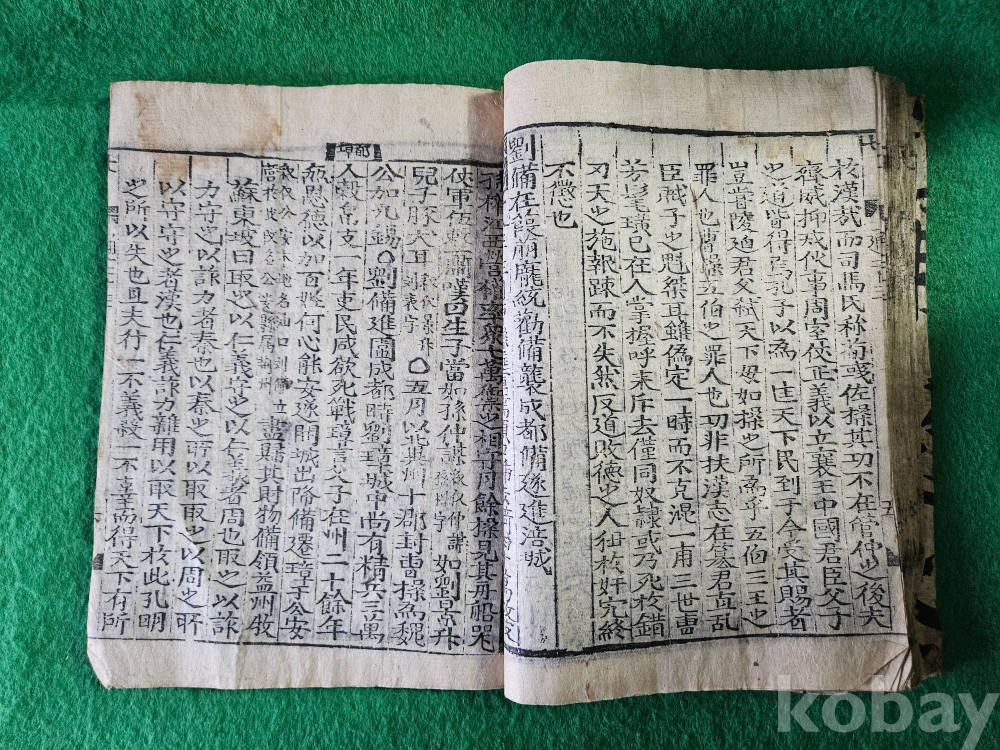 於漢哉而司馬氏稱荀彧佐操其功不在管仲之後夫
齊威抑戎狄事周室仗正義以立襄王中國君臣父子
之道皆得焉孔子以爲一匡天下民到于今受其賜者
豈嘗陵迫君父弑天下母如操之所爲乎五伯三王之
罪人也曹操五伯之罪人也功非扶漢志在簒君直亂
臣賊子之魁桀耳雖僞定一時而不克混一甫三世曹
芳髦璜已在人掌握呼來斥去僅同奴隷或乃死於錯
刃天之施報疎而不失然反道敗德之人狃於奸宄終
不懲也
劉備在葭萌龐統勸備襲成都備遂進涪城
相守月餘操見其舟船器
仗軍伍 歎曰生子當如孫仲謀 如劉景升
兒子豚犬耳 〇五月以冀州十郡封曹操爲魏
公加九錫〇劉備進圍成都時劉璋城中尚有精兵三萬
人穀帛支一年吏民咸欲死戰璋言父子在州二十餘年
無恩德以加百姓何心能安遂開城出降備遷璋于公安
盡歸其財物備領益州牧
蘇東坡曰取之以仁義守之以仁義者周也取之以詐
力守之以詐力者秦也以秦之所以取取之以周之所
以守守之者漢也仁義詐力雜用以取天下於此孔明
之所以失也且夫行一不義殺一不辜而得天下有所
kobay